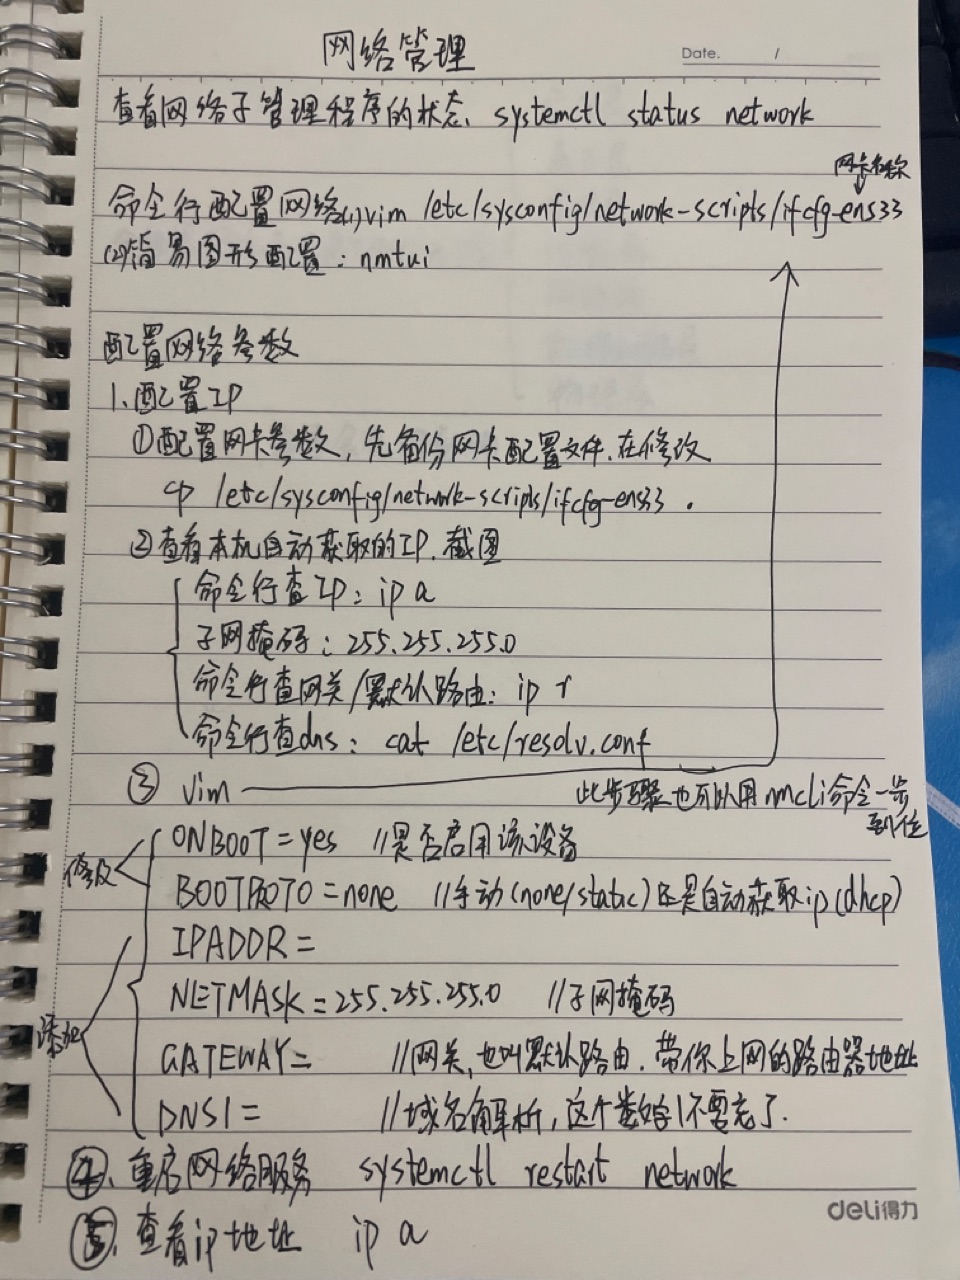 网络管理
Date. /
查看网络子管理程序的状态、systemctl status network
网卡名称
命令行配置网络(1)vim /etc/sysconfig/network-scripts/ifcfg-ens33
(2)简易图形配置：nmtui
配置网络参数
1.配置IP
①配置网卡参数，先备份网卡配置文件.在修改
cp /etc/sysconfig/network-scripts/ifcfg-ens33 .
②查看本机自动获取的IP.截图
命令行查IP：ip a
子网掩码：255.255.255.0
命令行查网关/默认路由：ip r
命令行查dns：cat /etc/resolv.conf
③ vim
此步骤也可以用nmcli命令一步
到位
修改
ONBOOT=yes //是否启用该设备
BOOTPROTO=none //手动(none/static)还是自动获取ip(dhcp)
IPADDR=
NETMASK=255.255.255.0 //子网掩码
添加
GATEWAY= //网关,也叫默认路由.带你上网的路由器地址
DNS1= //域名解析,这个数字1不要忘了.
④.重启网络服务 systemctl restart network
⑤.查看ip地址 ip a
deli得力